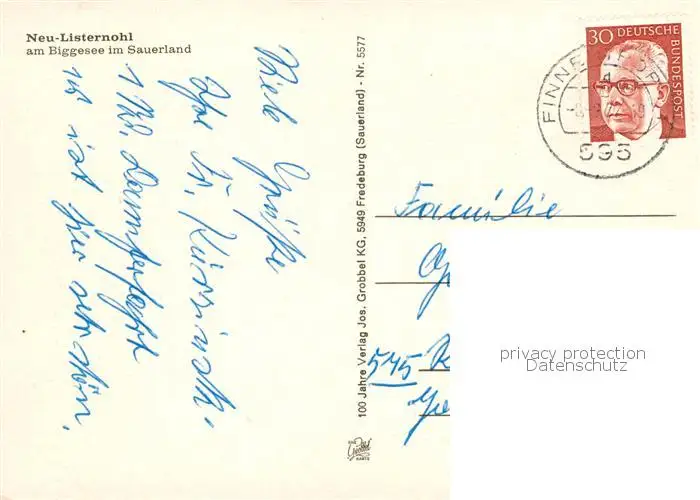 Neu-Listernohl
am Biggesee im Sauerland
Viele Grüße
Ihr Fr.
1 Std. Dampferfahrt
ist hier sehr schön.
100 Jahre Verlag Jos. Grobbel KG, 5949 Fredeburg (Sauerland) - Nr. 5577
30 DEUTSCHE BUNDESPOST
FINNE
595
Familie
545
privacy protection
Datenschutz